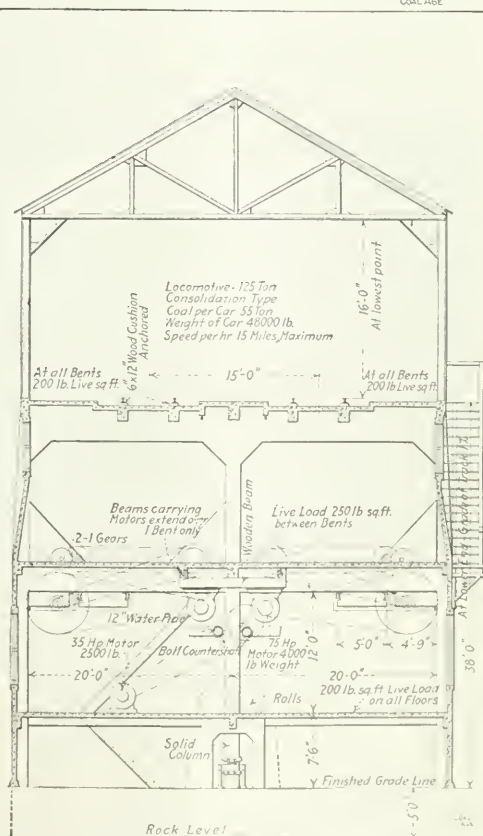 COAL AGE
Locomotive - 125 Ton
Consolidation Type
Coal per Car 55 Ton
Weight of Car 48000 lb.
Speed per hr 15 Miles, Maximum
16'-0"
At lowest point
6x12" Wood Cushion
Anchored
At all Bents
200 lb. Live sq ft.
15'-0"
At all Bents
200 lb Live sq ft.
Beams carrying
Motors extend over
1 Bent only
Wooden Beam
Live Load 250 lb sq.ft.
between Bents
2-1 Gears
12" Water Pipe
35 Hp Motor
2500 lb.
Bolt Countershaft
75 Hp
Motor 4000
lb Weight
12'0"
5'0"
4'-9"
20'-0"
20'-0"
200 lb. sq.ft Live Load
on all Floors
Rolls
38'0"
Solid
Column
7'6"
Finished Grade Line
5'0"
Rock Level